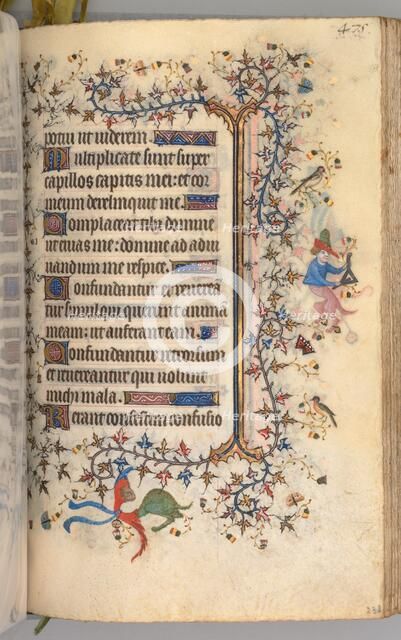 475
potui ut viderem
Multiplicate sunt super
capillos capitis mei: et cor
meum dereliquit me
Complaceat tibi domine
ut eruas me: domine ad adiu
vandum me respice
Confundantur et reverea
tur simul qui querunt animā
meam: ut auferant eam
Confundantur retrorsum
et revereantur qui volunt
michi mala
Ferant confestim confusio
Heritage
Heritage